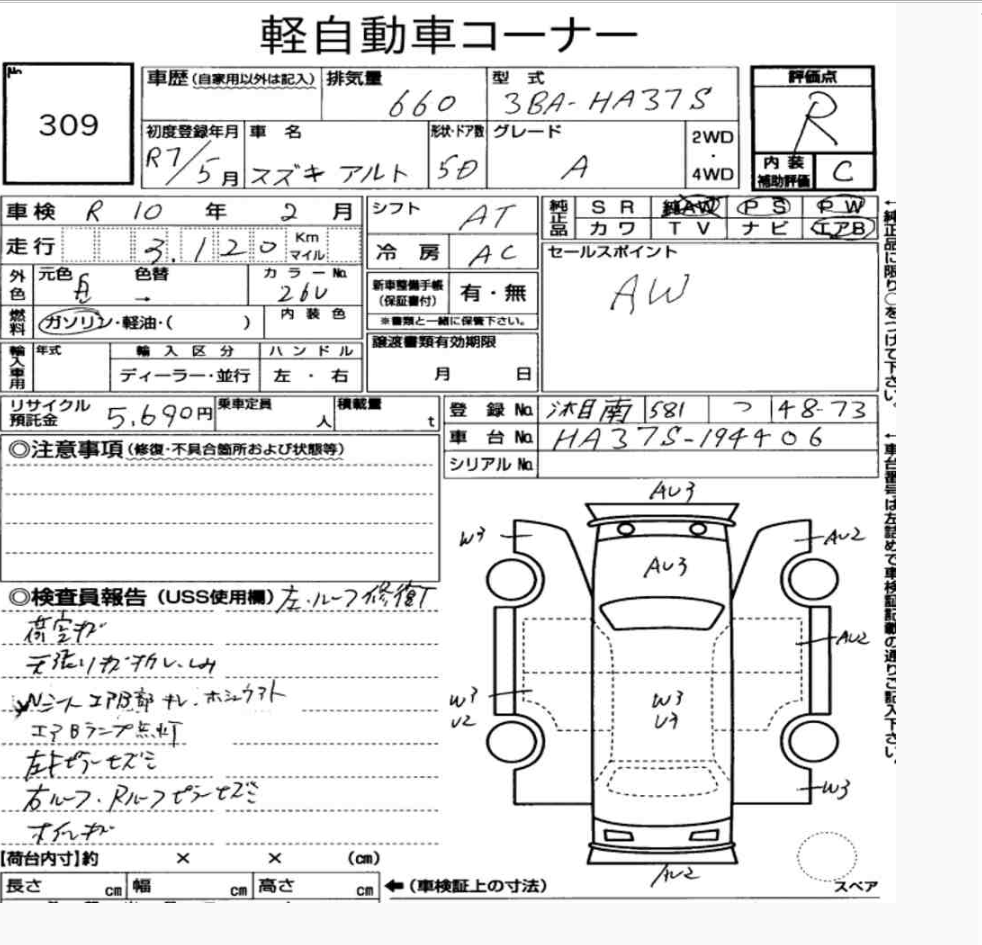 軽自動車コーナー
No. 309
車歴 (自家用以外は記入) 排気量 660 型式 3BA-HA37S
評価点 R
初度登録年月 R7/5月 車名 スズキ アルト 形状・ドア数 5D グレード A 2WD・4WD
内装補助評価 C
車検 R 10年 2月 シフト AT 純正品 SR 純AW PS PW
カワ TV ナビ エアB
走行 3,120 Km マイル 冷房 AC
セールスポイント
AW
外色 元色 色替 → カラーNo. 26U
新車整備手帳(保証書付) 有・無
※書類と一緒に保管下さい。
燃料 ガソリン・軽油・( ) 内装色
譲渡書類有効期限
月 日
輸入車用 年式 輸入区分 ハンドル
ディーラー・並行 左・右
リサイクル預託金 5,690円 乗車定員 人 積載量 t
登録No. 581 つ 48-73
車台No. HA37S-194406
シリアルNo.
←純正品に限り○をつけて下さい。
←車台番号は左詰めで車検証記載の通りご記入下さい。
◎注意事項(修復・不具合箇所および状態等)
◎検査員報告(USS使用欄) 左.ルーフ修復
荷室キズ
エアBランプ点灯
AU3
W3
AU2
AU3
AU2
W3
U2
W3
U3
W3
AU2
スペア
【荷台内寸】約 × × (cm)
長さ cm 幅 cm 高さ cm ←(車検証上の寸法)